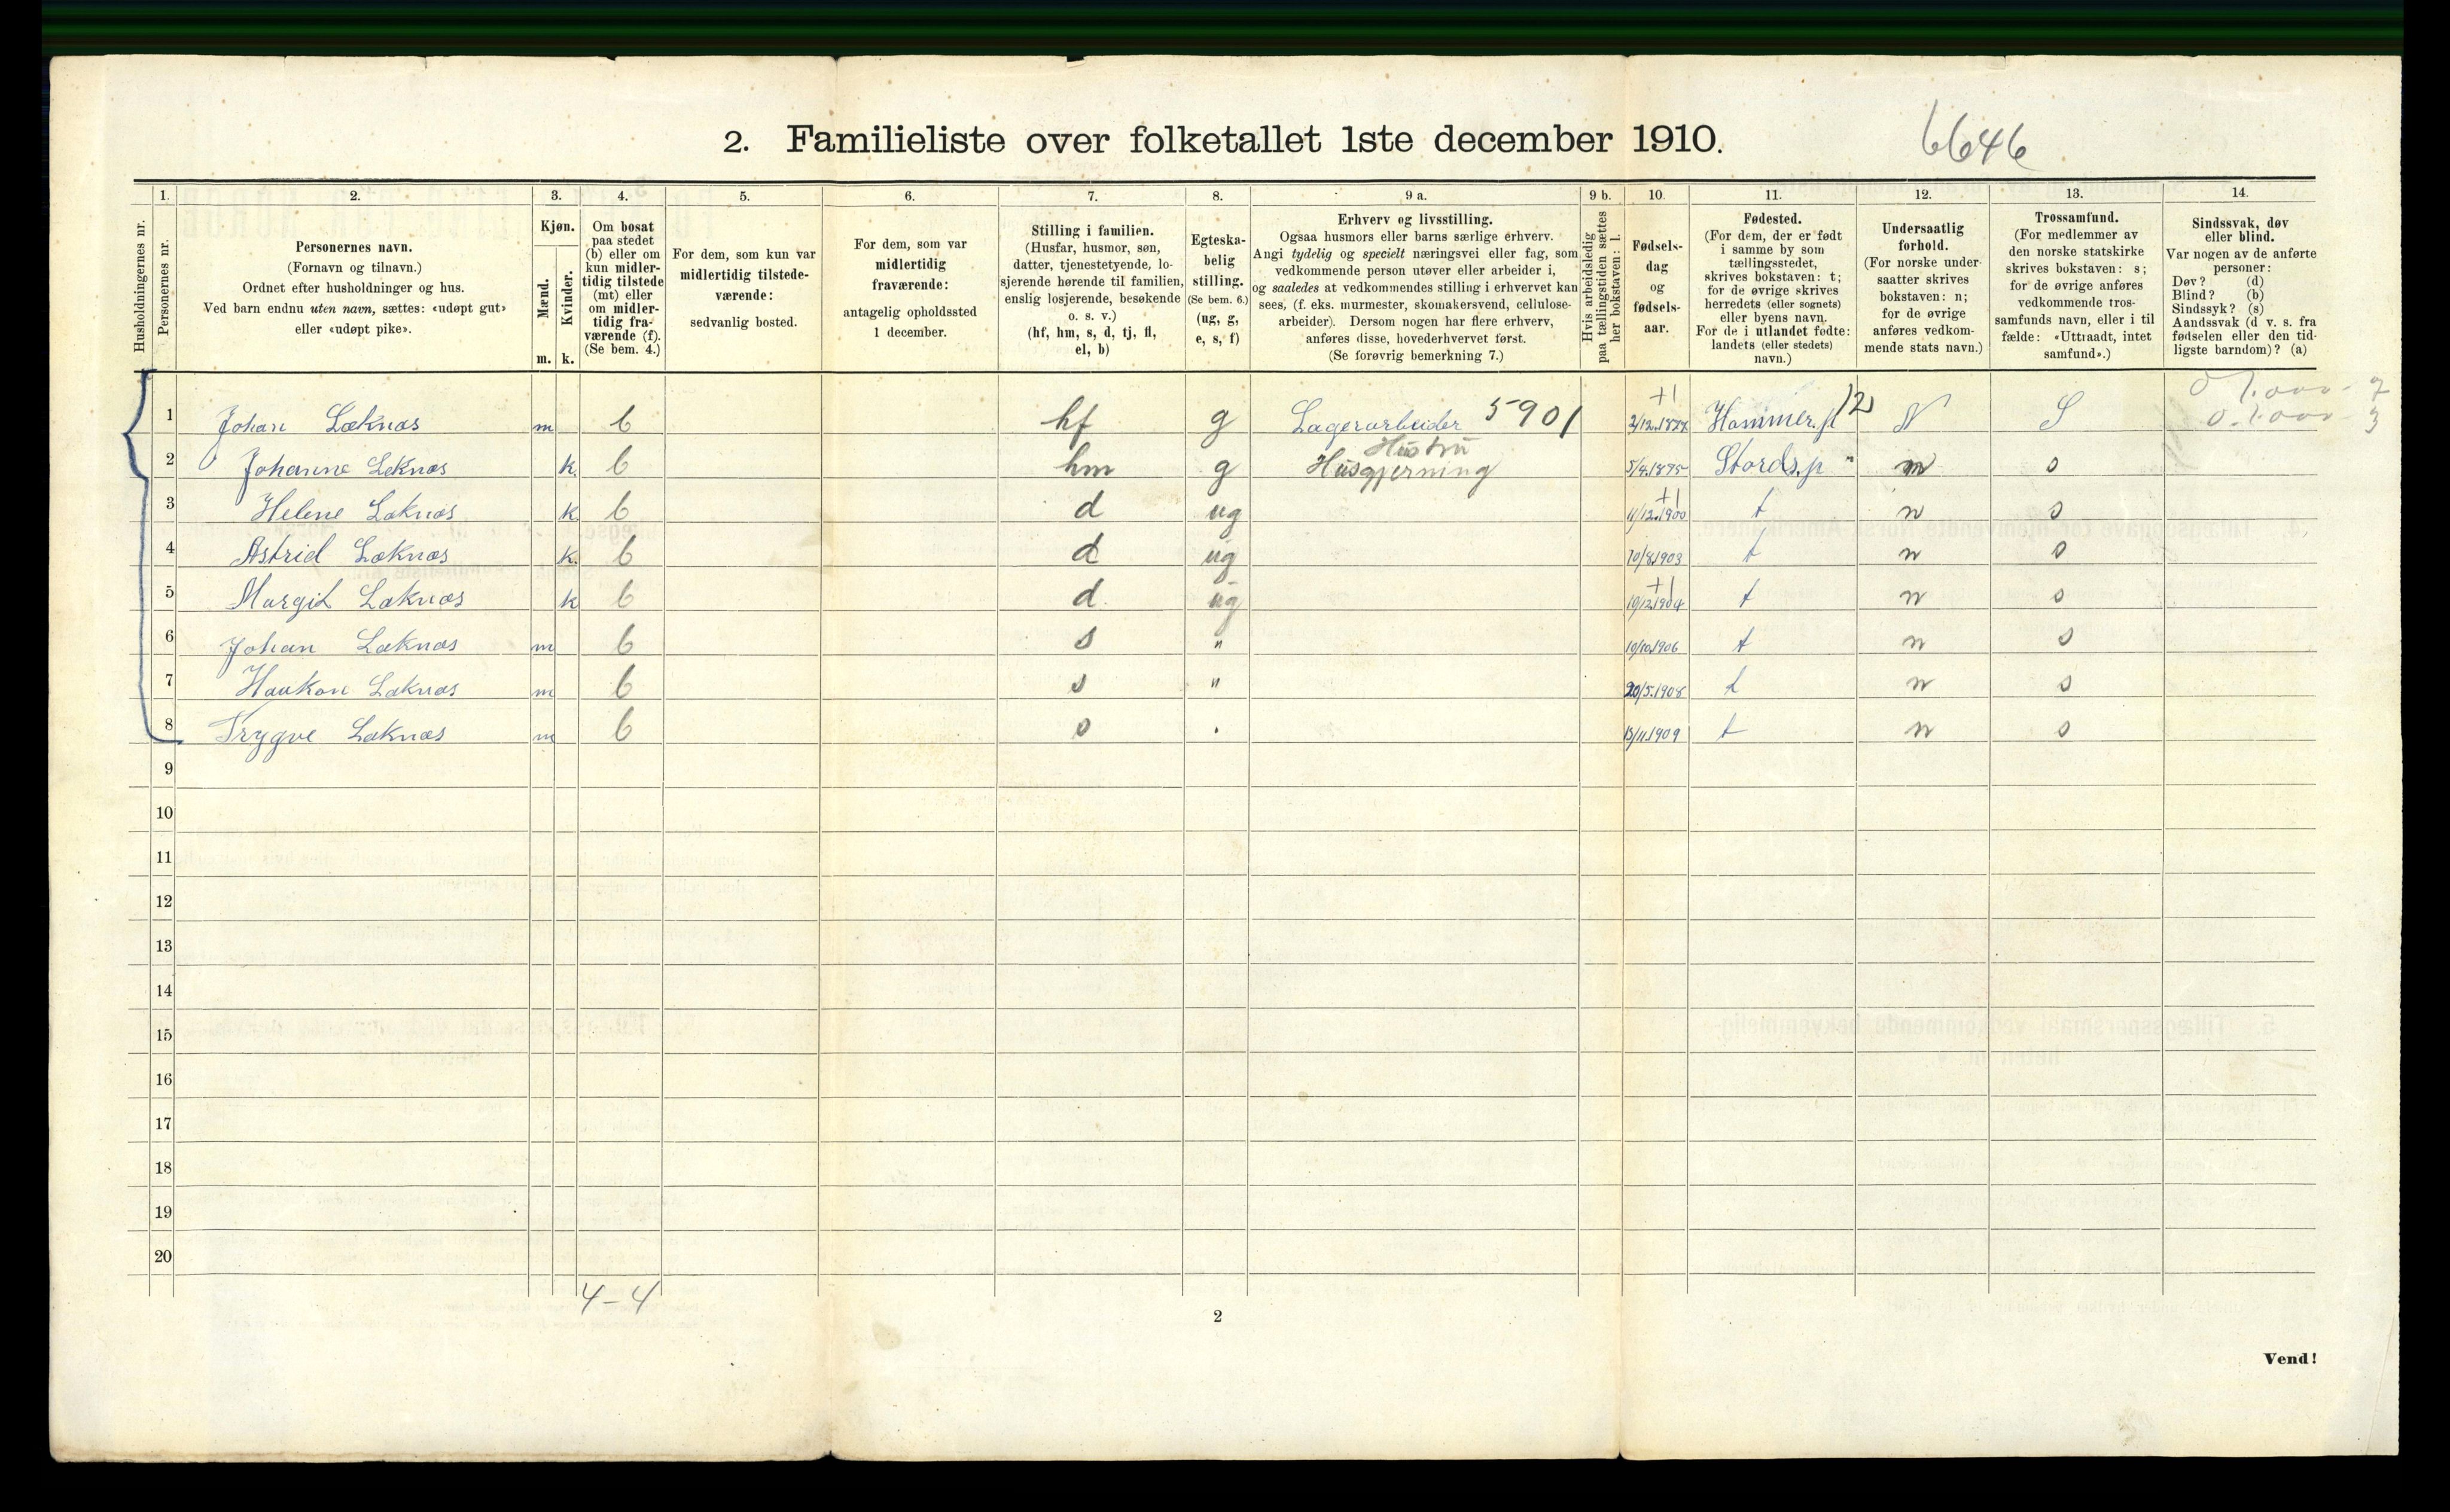 2. Familieliste over folketallet 1ste december 1910.
6646
Husholdningernes nr.
1.
Personernes nr.
2.
Personernes navn.
(Fornavn og tilnavn.)
Ordnet efter husholdninger og hus.
Ved barn endnu uten navn, sættes: «udøpt gut»
eller «udøpt pike».
3.
Kjøn.
Mænd.
Kvinder.
m. k.
4.
Om bosat
paa stedet
(b) eller om
kun midler-
tidig tilstede
(mt) eller
om midler-
tidig fra-
værende (f).
(Se bem. 4.)
5.
For dem, som kun var
midlertidig tilstede-
værende:
sedvanlig bosted.
6.
For dem, som var
midlertidig
fraværende:
antagelig opholdssted
1 december.
7.
Stilling i familien.
(Husfar, husmor, søn,
datter, tjenestetyende, lo-
sjerende hørende til familien,
enslig losjerende, besøkende
o. s. v.)
(hf, hm, s, d, tj, fl,
el, b)
8.
Egteska-
belig
stilling.
(Se bem. 6.)
(ug, g,
e, s, f)
9 a.
Erhverv og livsstilling.
Ogsaa husmors eller barns særlige erhverv.
Angi tydelig og specielt næringsvei eller fag, som
vedkommende person utøver eller arbeider i,
og saaledes at vedkommendes stilling i erhvervet kan
sees, (f. eks. murmester, skomakersvend, cellulose-
arbeider). Dersom nogen har flere erhverv,
anføres disse, hovederhvervet først.
(Se forøvrig bemerkning 7.)
9 b.
Hvis arbeidsledig
paa tællingstiden sættes
her bokstaven: l.
10.
Fødsels-
dag
og
fødsels-
aar.
11.
Fødested.
(For dem, der er født
i samme by som
tællingsstedet,
skrives bokstaven: t;
for de øvrige skrives
herredets (eller sognets)
eller byens navn.
For de i utlandet fødte:
landets (eller stedets)
navn.)
12.
Undersaatlig
forhold.
(For norske under-
saatter skrives
bokstaven: n;
for de øvrige
anføres vedkom-
mende stats navn.)
13.
Trossamfund.
(For medlemmer av
den norske statskirke
skrives bokstaven: s;
for de øvrige anføres
vedkommende tros-
samfunds navn, eller i til
fælde: «Uttraadt, intet
samfund».)
14.
Sindssvak, døv
eller blind.
Var nogen av de anførte
personer:
Døv? (d)
Blind? (b)
Sindssyk? (s)
Aandssvak (d v. s. fra
fødselen eller den tid-
ligste barndom)? (a)
+1
1 Johan Løknæs m b hf g Lagerarbeider 5901 Hammer.p 12 N S
Hustru
2 Johanne Løknæs k b hm g Husgjerning 5/4.1875 Stords.p " n s
+1
3 Helene Løknæs k b d ug 11/12.1900 t n s
4 Astrid Løknæs k b d ug 10/8.1903 t n s
+1
5 Margit Løknæs k b d ug 19/12.1904 t n s
6 Johan Løknæs m b s " 19/10.1906 t n s
7 Haakon Løknæs m b s " 20/5.1908 t n s
8 Trygve Løknæs m b s . 13/11.1909 t n s
9
10
11
12
13
14
15
16
17
18
19
20
4-4
2
Vend!